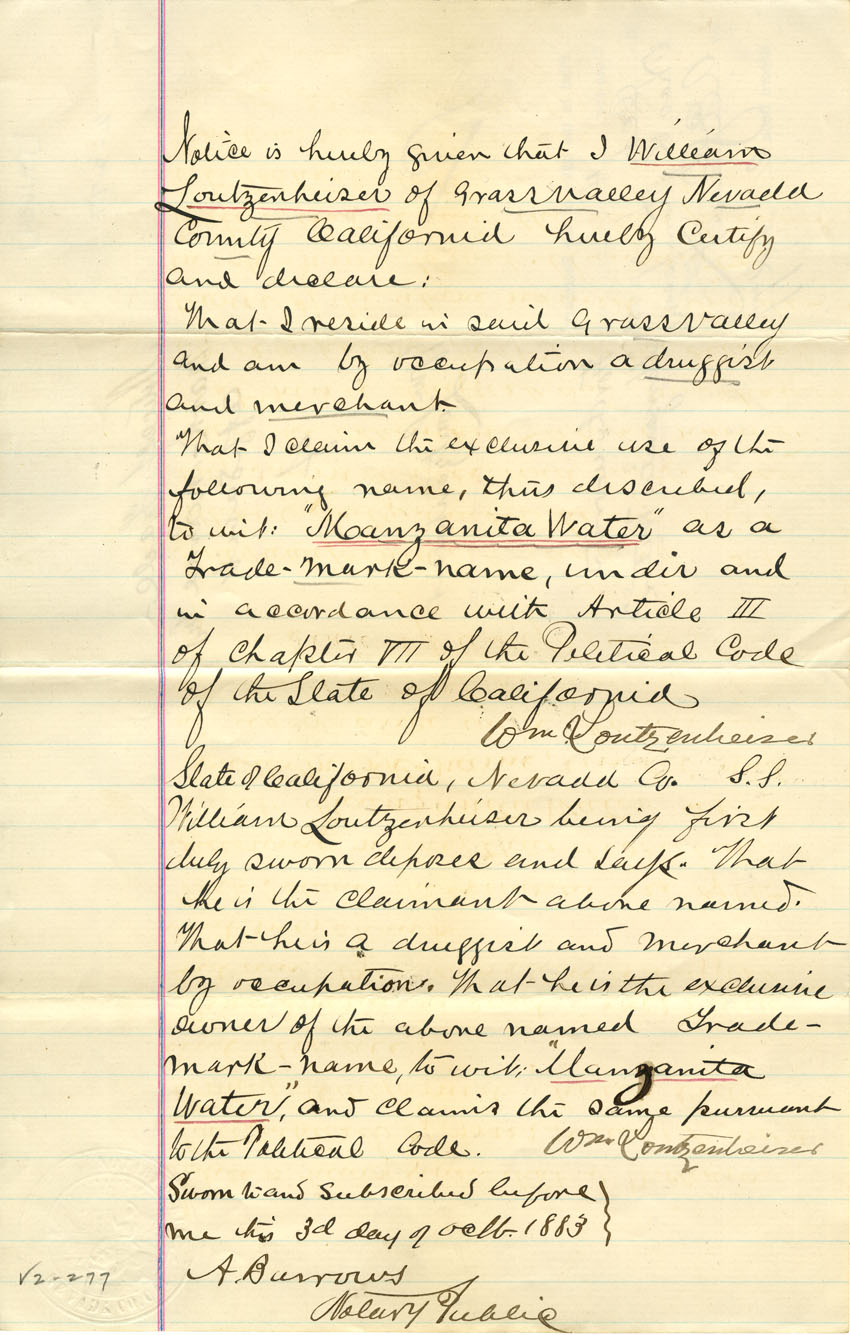 Notice is hereby given that I William
Loutzenheiser of Grass Valley Nevada
County California hereby Certify
and declare:
That I reside in said Grass Valley
and am by occupation a druggist
and merchant.
That I claim the exclusive use of the
following name, thus described,
to wit: "Manzanita Water" as a
Trade-mark-name, under and
in accordance with Article III
of chapter VII of the Political Code
of the State of California
Wm Loutzenheiser
State of California, Nevada Co. S.S.
William Loutzenheiser being first
duly sworn deposes and says. That
he is the claimant above named.
That he is a druggist and merchant
by occupation. That he is the exclusive
owner of the above named Trade-
mark-name, to wit: "Manzanita
Water", and claims the same pursuant
to the Political Code. Wm Loutzenheiser
Sworn to and subscribed before
me this 3d day of Octb. 1883
A Burrows
Notary Public
V2-277